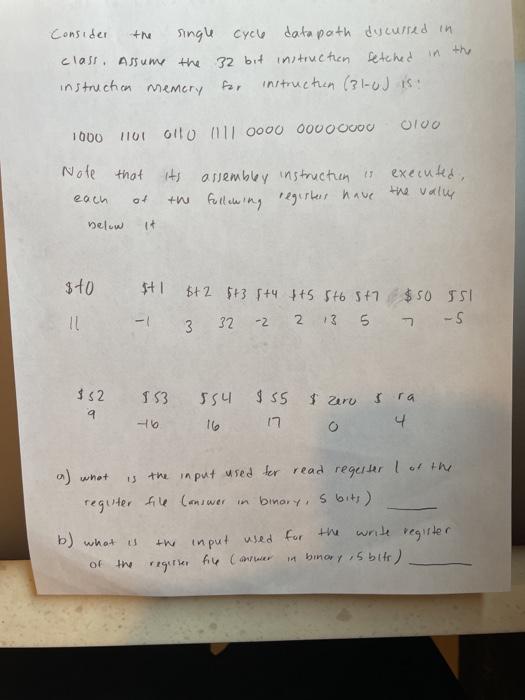 Consider the single cycle datapath discussed in
class. Assume the 32 bit instruction fetched in the
instruction memory for instruction (31-0) is:
1000 1101 0110 1111 0000 00000000 0100
Note that its assembley instruction is executed,
each of the following registers have the value
below it
$t0 $t1 $t2 $t3 $t4 $t5 $t6 $t7 $S0 $S1
11 -1 3 32 -2 2 13 5 7 -5
$S2 $S3 $S4 $S5 $ zero $ ra
9 -16 16 17 0 4
a) what is the input used for read regester 1 of the
register file (answer in binary, 5 bits)
b) what is the input used for the write register
of the register file (answer in binary, 5 bits)